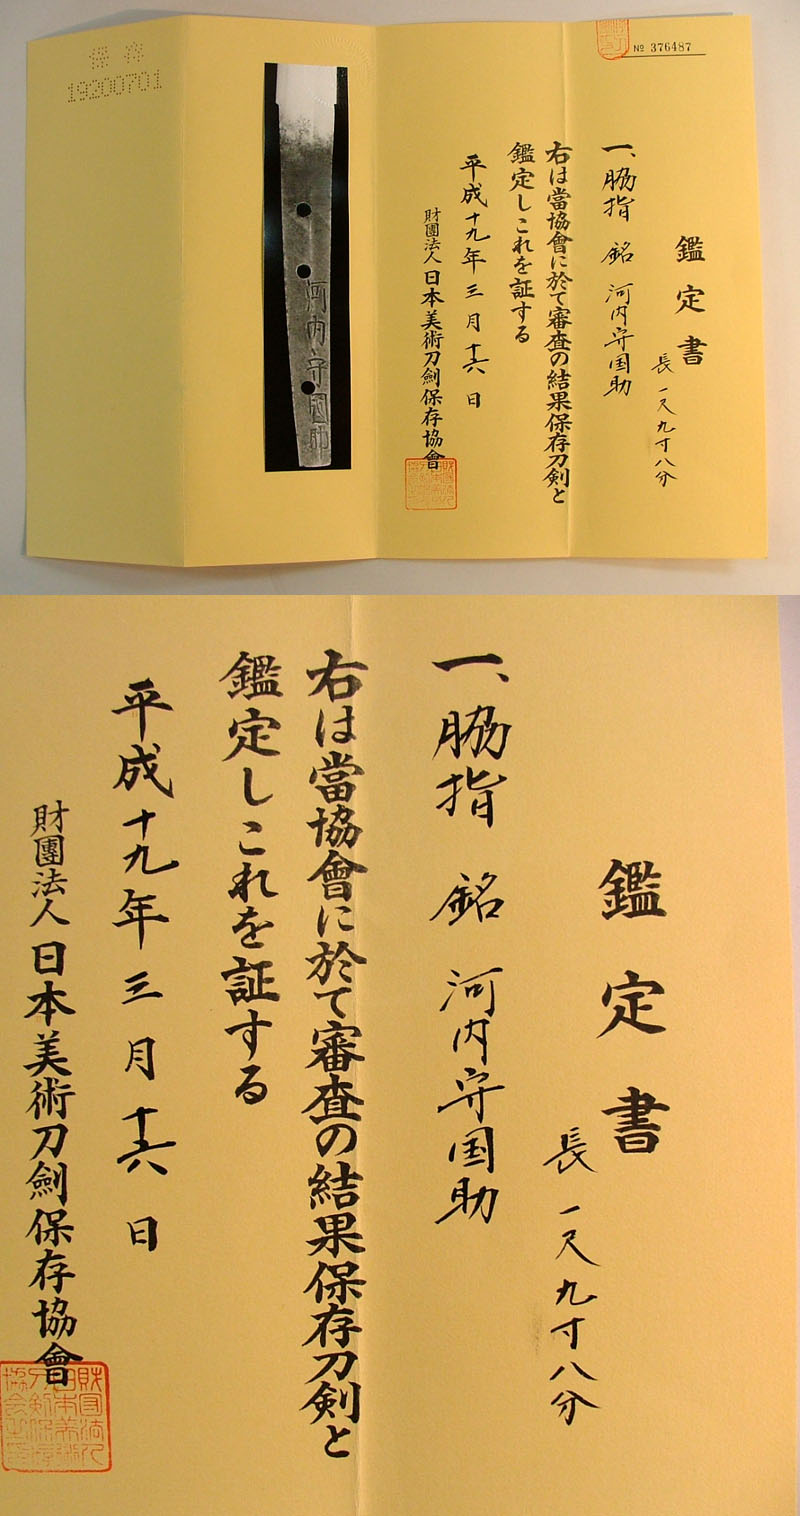 № 376487
鑑定書
長 一尺九寸八分
一、脇指 銘 河内守国助
右は當協會に於て審査の結果保存刀剣と
鑑定しこれを証する
平成十九年三月十六日
財團法人日本美術刀劍保存協會
河内守國助
保存
19200701
鑑定書
長 一尺九寸八分
一、脇指 銘 河内守国助
右は當協會に於て審査の結果保存刀剣と
鑑定しこれを証する
平成十九年三月十六日
財團法人日本美術刀劍保存協會